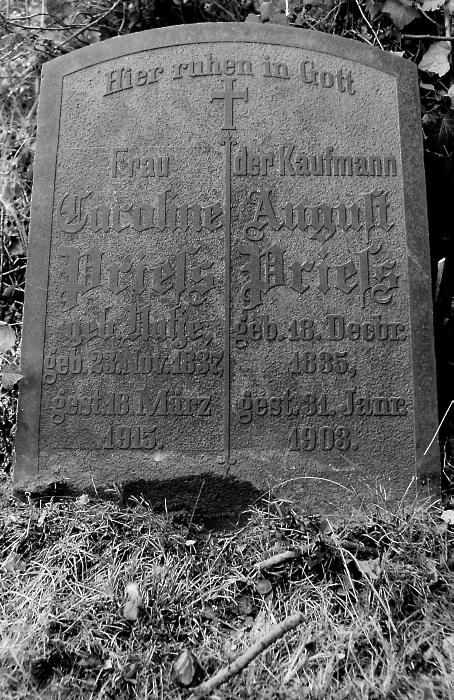 Hier ruhen in Gott
Frau
Caroline
Prieſs
geb.
geb. 23. Nov. 1837,
gest. 18. März
1915.
der Kaufmann
August
Prieſs
geb. 18. Decbr.
1835,
gest. 31. Janr.
1903.